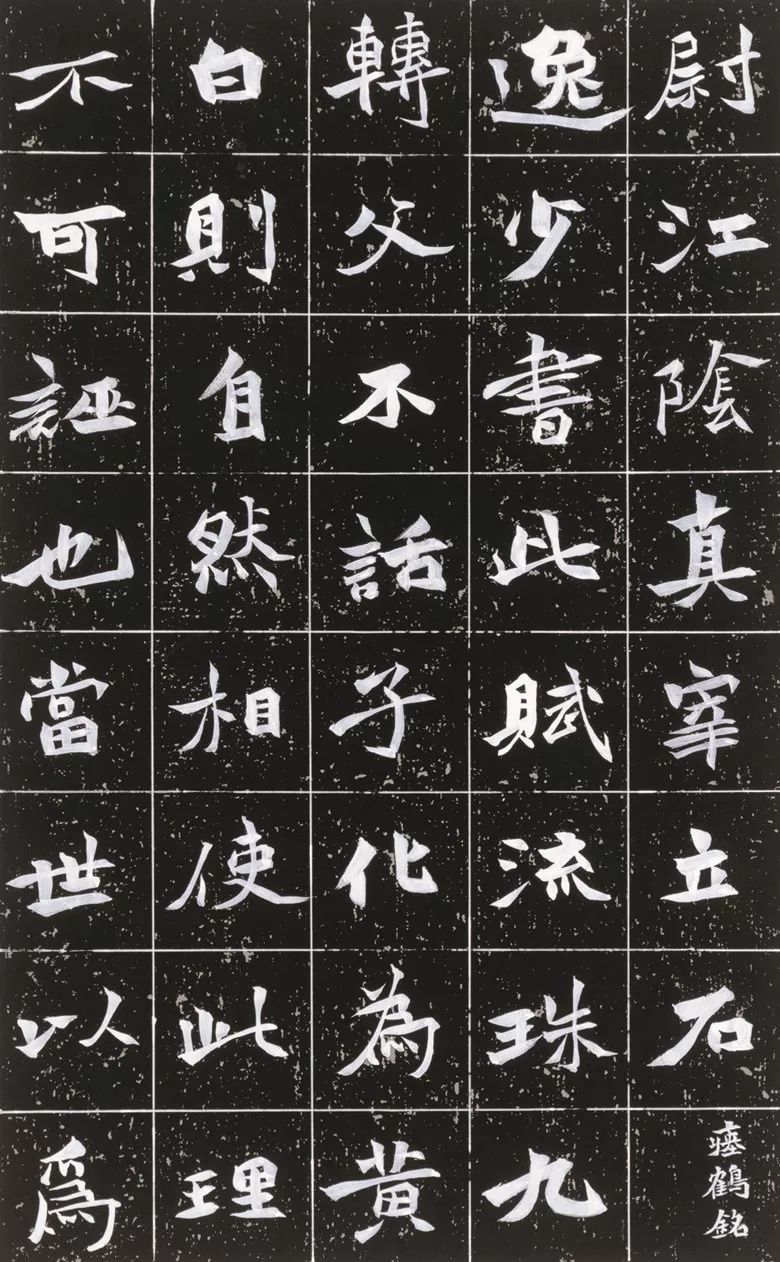 尉江陰真宰立石
瘞鶴銘
逸少書此賦流珠九
轉父不話子化為黃
白則自然相使此理
不可誣也當世以爲